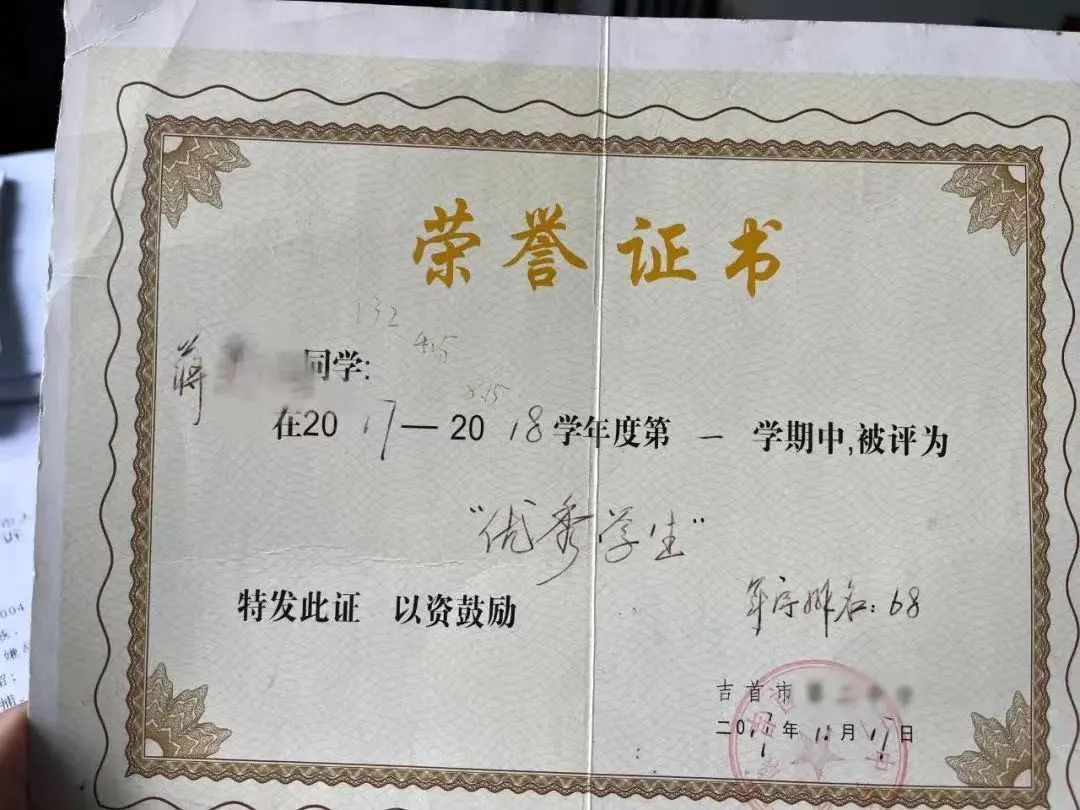 荣誉证书
132
蒋 同学:
8.15
在2017—2018学年度第一学期中,被评为
"优秀学生"
特发此证 以资鼓励
年序排名:68
吉首市
二017年11月17日